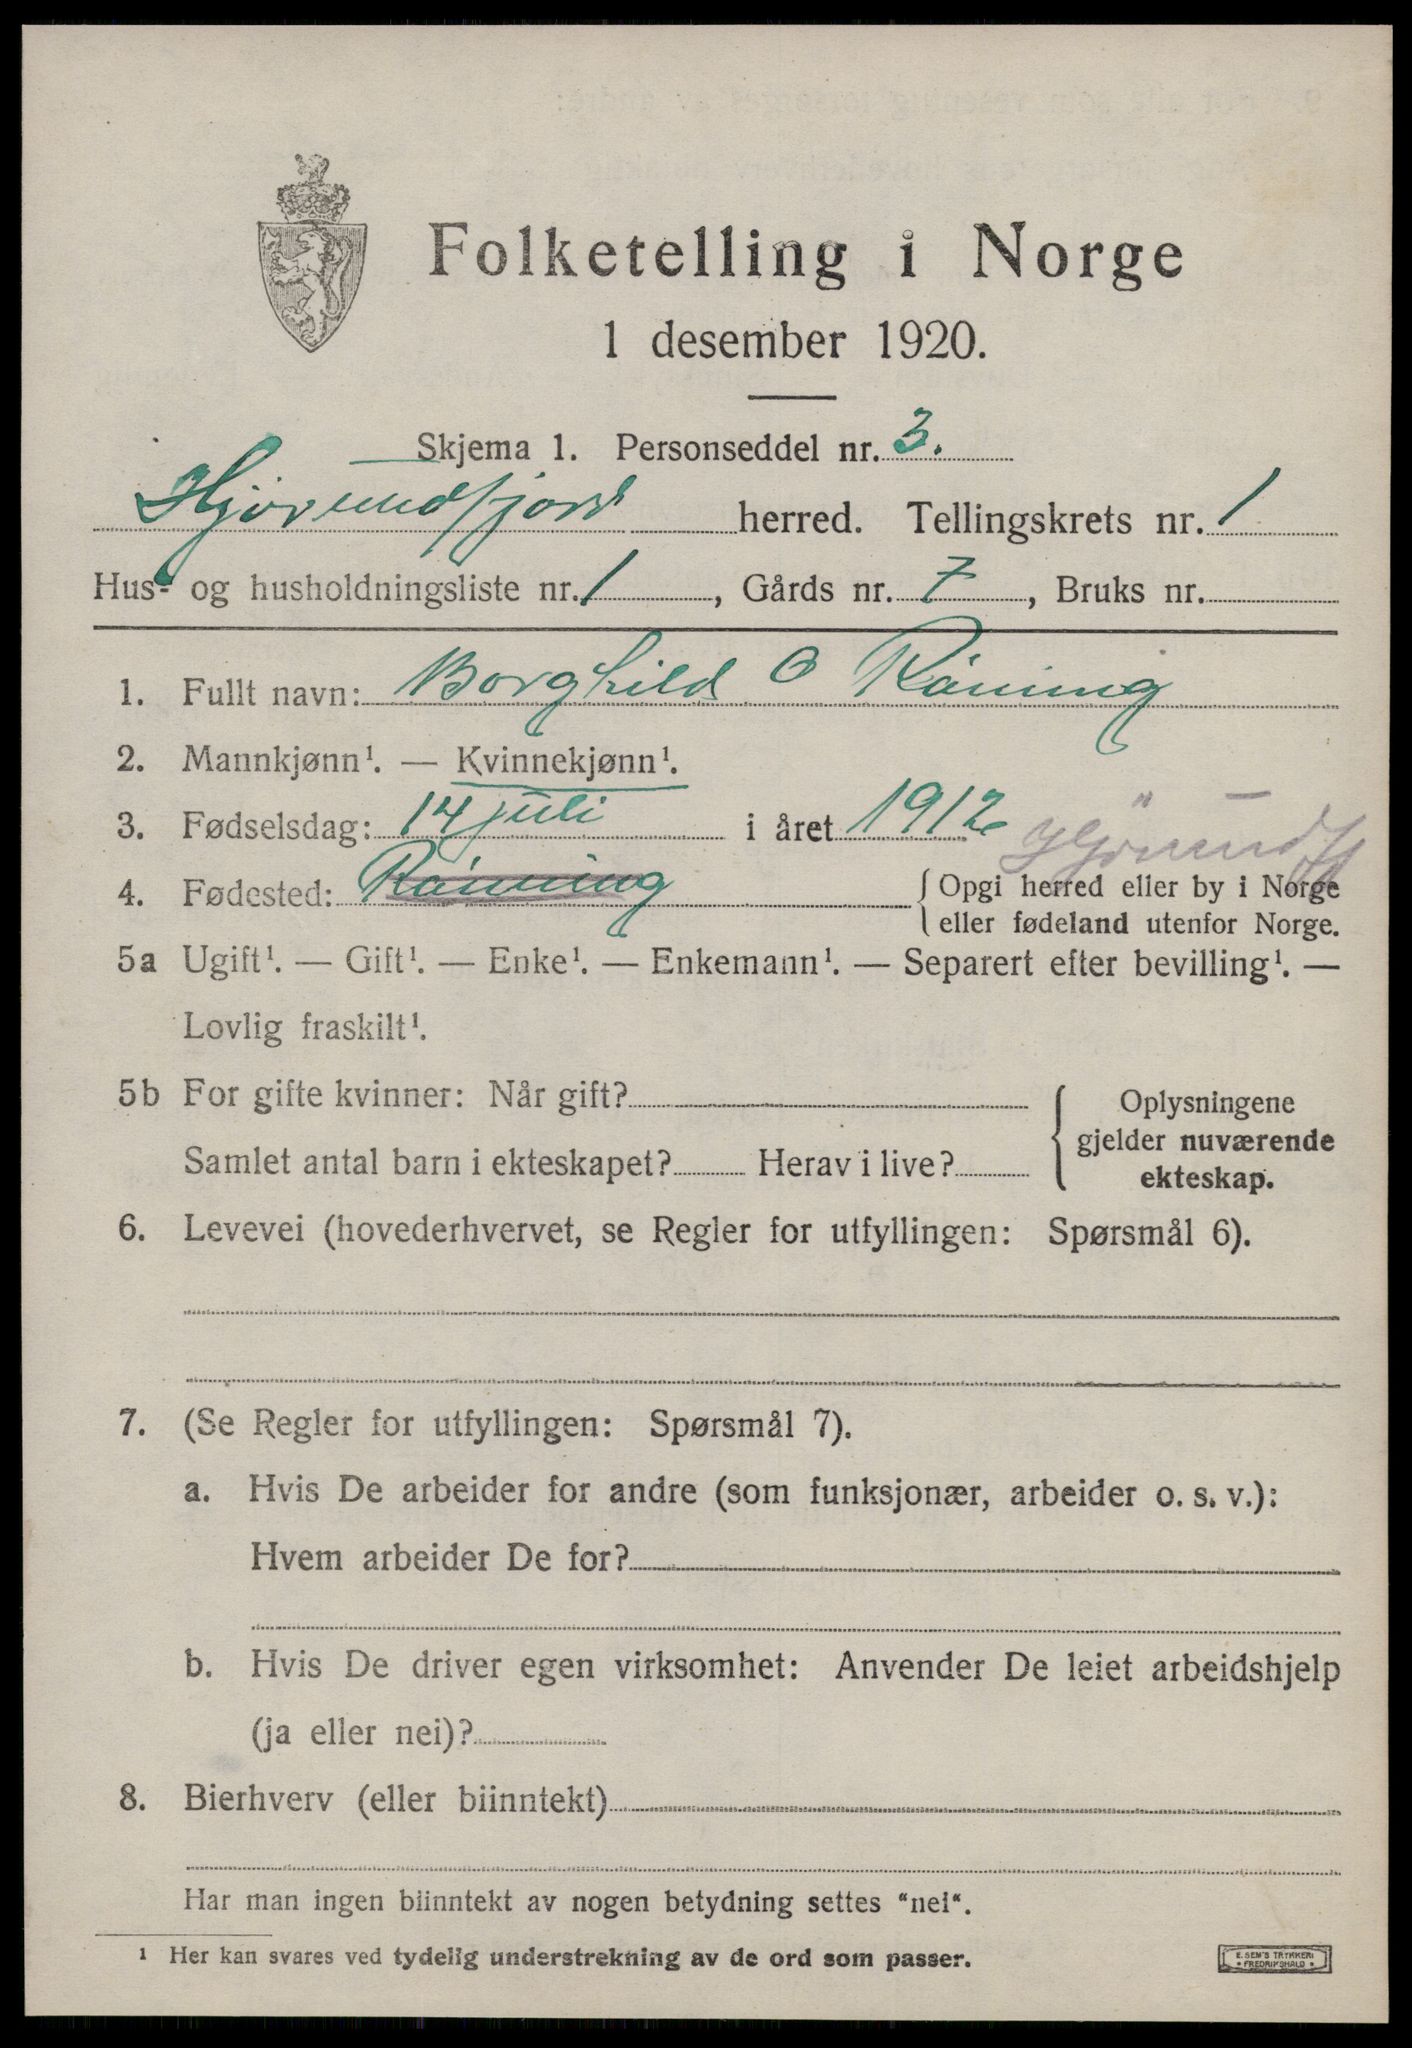 Folketelling i Norge
1 desember 1920.
Skjema 1. Personseddel nr. 3.
Hjørundfjord herred. Tellingskrets nr. 1
Hus- og husholdningsliste nr. 1, Gårds nr. 7, Bruks nr.
1. Fullt navn: Borghild O Rönning
2. Mannkjønn¹. — Kvinnekjønn¹.
3. Fødselsdag: 14 juli i året 1912
Hjörundfj
4. Fødested: Rönning { Opgi herred eller by i Norge
eller fødeland utenfor Norge.
5a Ugift¹. — Gift¹. — Enke¹. — Enkemann¹. — Separert efter bevilling¹. —
Lovlig fraskilt¹.
5b For gifte kvinner: Når gift?
Samlet antal barn i ekteskapet? Herav i live?
Oplysningene
gjelder nuværende
ekteskap.
6. Levevei (hovederhvervet, se Regler for utfyllingen: Spørsmål 6).
7. (Se Regler for utfyllingen: Spørsmål 7).
a. Hvis De arbeider for andre (som funksjonær, arbeider o. s. v.):
Hvem arbeider De for?
b. Hvis De driver egen virksomhet: Anvender De leiet arbeidshjelp
(ja eller nei)?
8. Bierhverv (eller biinntekt)
Har man ingen biinntekt av nogen betydning settes "nei".
¹ Her kan svares ved tydelig understrekning av de ord som passer.
E. SEM'S TRYKKERI
• FREDRIKSHALD •